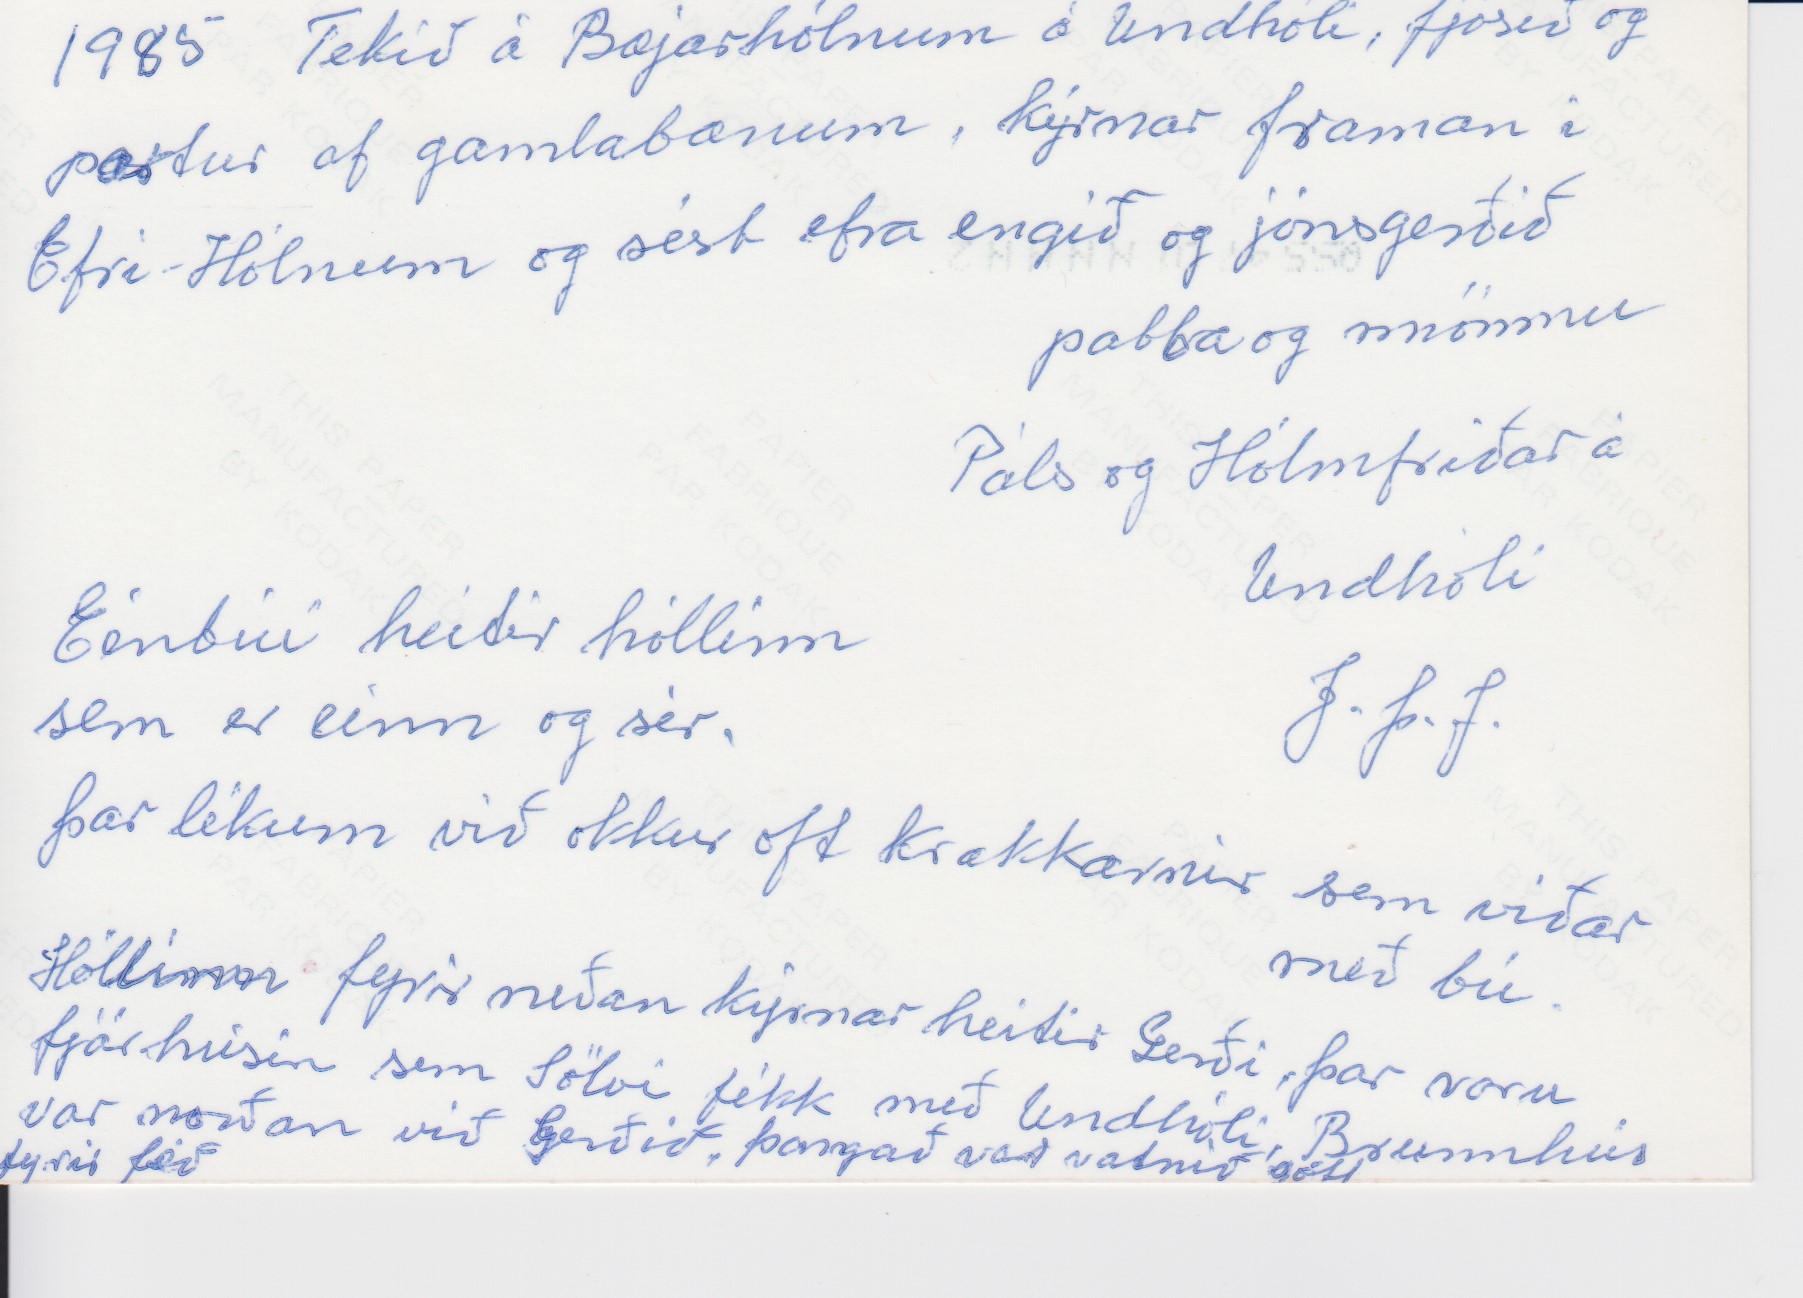 1985 Tekið á Bæjarhólnum á Undhóli, fjósið og
partur af gamlabænum, kýrnar framan í
Efri-Hólnum og sést efra engið og jónsgerðið
pabba og mömmu
Páls og Hólmfriðar á
Undhóli
Einbúi heitir hóllinn
sem er einn og sér.
Þar lékum við okkur oft krakkarnir sem viðar
með bú.
Hóllinn fyrir neðan kýrnar heitir Gerði, þar voru
fjárhúsin sem Sölvi fékk með Undhóli, Brunnhús
var norðan við Gerðið, þangað var vatnið sótt
fyrir féð
THIS PAPER
MANUFACTURED
BY KODAK
PAPIER
FABRIQUE
PAR KODAK